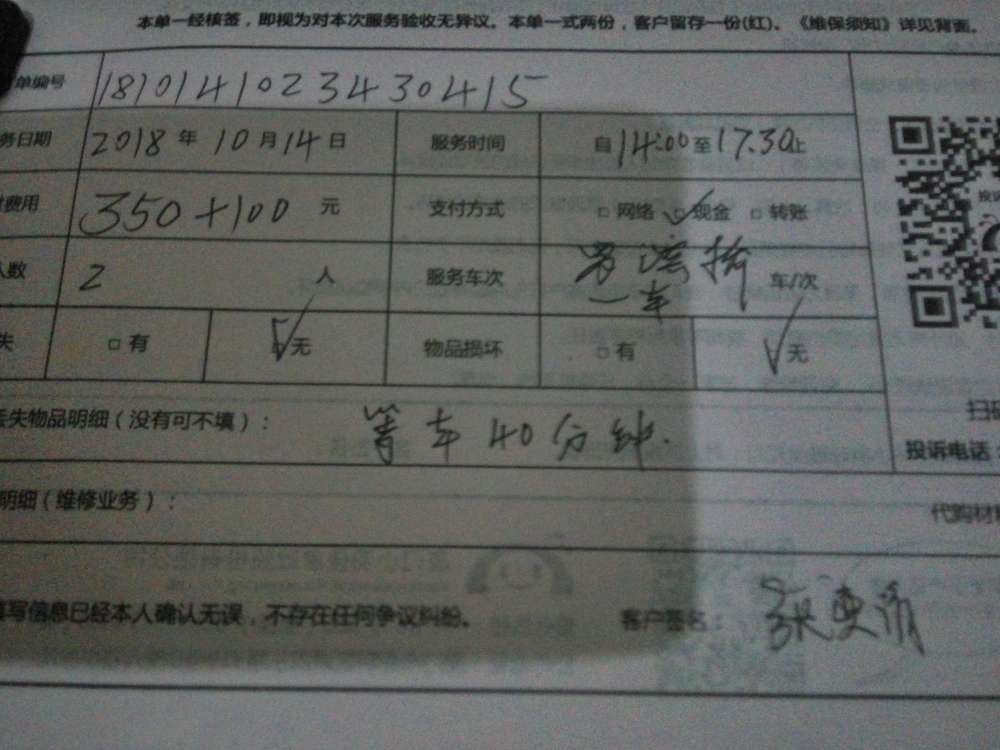 本单一经核签，即视为对本次服务验收无异议。本单一式两份，客户留存一份(红)。《维保须知》详见背面。
单编号 181014102343 0415
务日期 2018 年 10 月 14 日 服务时间 自 14:00 至 17.30 止
费用 350+100 元 支付方式 □ 网络 ☑ 现金 □ 转账
人数 2 人 服务车次 一车 车/次
失 □ 有 ☑ 无 物品损坏 □ 有 ☑ 无
丢失物品明细（没有可不填）： 等车40分钟.
扫码
投诉电话：
明细（维修业务）：
代购材
填写信息已经本人确认无误，不存在任何争议纠纷。 客户签名： 张